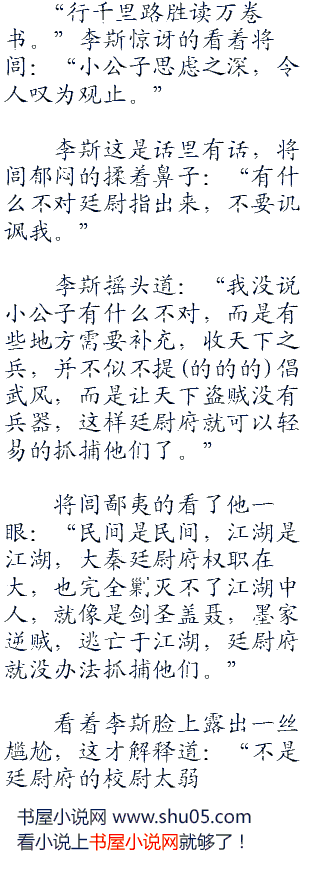 “行千里路胜读万卷
书。”李斯惊讶的看着将
闾：“小公子思虑之深，令
人叹为观止。”
李斯这是话里有话，将
闾郁闷的揉着鼻子：“有什
么不对廷尉指出来，不要讥
讽我。”
李斯摇头道：“我没说
小公子有什么不对，而是有
些地方需要补充，收天下之
兵，并不似不提(的的的)倡
武风，而是让天下盗贼没有
兵器，这样廷尉府就可以轻
易的抓捕他们了。”
将闾鄙夷的看了他一
眼：“民间是民间，江湖是
江湖，大秦廷尉府权职在
大，也完全剿灭不了江湖中
人，就像是剑圣盖聂，墨家
逆贼，逃亡于江湖，廷尉府
就没办法抓捕他们。”
看着李斯脸上露出一丝
尴尬，这才解释道：“不是
廷尉府的校尉太弱
书屋小说网 www.shu05.com
看小说上书屋小说网就够了！